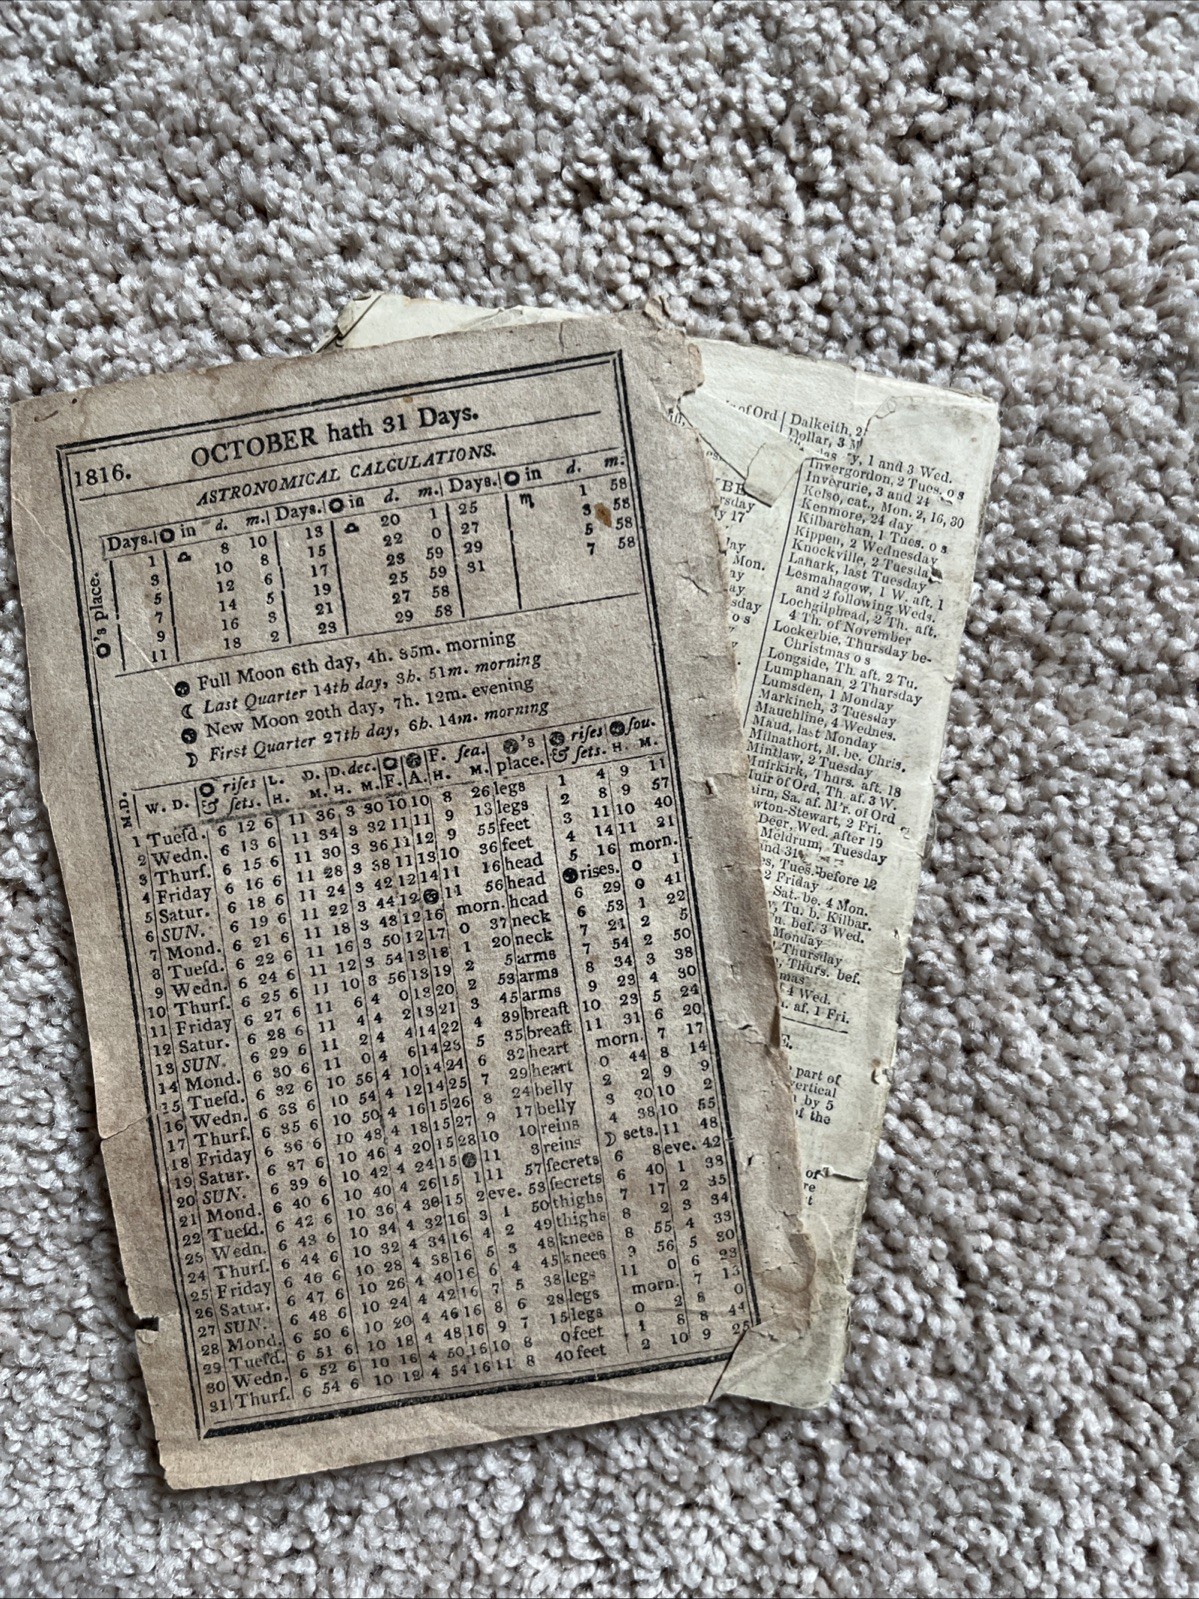 1816. OCTOBER hath 31 Days.
ASTRONOMICAL CALCULATIONS.
Days. in d. m. Days. in d. m. Days. in d. m.
1 ♎ 8 10 13 ♎ 20 1 25 ♏ 1 58
3 10 8 15 22 0 27 3 58
5 12 6 17 23 59 29 5 58
7 14 5 19 25 59 31 7 58
9 16 3 21 27 58
11 18 2 23 29 58
's place.
Full Moon 6th day, 4h. 35m. morning
☾ Last Quarter 14th day, 3h. 51m. morning
New Moon 20th day, 7h. 12m. evening
☽ First Quarter 27th day, 6h. 14m. morning
M.D. W. D. riſes & ſets. L. D. H. M. D. dec. H. M. F. A. F. ſea. H. M. 's place. riſes & ſets. ſou. H. M.
1 Tueſd. 6 12 6 11 36 3 30 10 10 8 26 legs 1 4 9 11
2 Wedn. 6 13 6 11 34 3 32 11 11 9 13 legs 2 8 9 57
3 Thurſ. 6 15 6 11 30 3 36 11 12 9 55 feet 3 11 10 40
4 Friday 6 16 6 11 28 3 38 11 13 10 36 feet 4 14 11 21
5 Satur. 6 18 6 11 24 3 42 12 14 11 16 head 5 16 morn.
6 SUN. 6 19 6 11 22 3 44 12 11 56 head rises. 0 1
7 Mond. 6 21 6 11 18 3 48 12 16 morn. head 6 29 0 41
8 Tueſd. 6 22 6 11 16 3 50 12 17 0 37 neck 6 53 1 22
9 Wedn. 6 24 6 11 12 3 54 13 18 1 20 neck 7 21 2 5
10 Thurſ. 6 25 6 11 10 3 56 13 19 2 5 arms 7 54 2 50
11 Friday 6 27 6 11 6 4 0 13 20 2 53 arms 8 34 3 38
12 Satur. 6 28 6 11 4 4 2 13 21 3 45 arms 9 23 4 30
13 SUN. 6 29 6 11 2 4 4 14 22 4 39 breaſt 10 23 5 24
14 Mond. 6 30 6 11 0 4 6 14 23 5 35 breaſt 11 31 6 20
15 Tueſd. 6 32 6 10 56 4 10 14 24 6 32 heart morn. 7 17
16 Wedn. 6 33 6 10 54 4 12 14 25 7 29 heart 0 44 8 14
17 Thurſ. 6 35 6 10 50 4 16 15 26 8 24 belly 2 2 9 9
18 Friday 6 36 6 10 48 4 18 15 27 9 17 belly 3 20 10 2
19 Satur. 6 37 6 10 46 4 20 15 28 10 10 reins 4 38 10 55
20 SUN. 6 39 6 10 42 4 24 15 11 3 reins ☽ sets. 11 48
21 Mond. 6 40 6 10 40 4 26 15 1 11 57 ſecrets 6 8 eve. 42
22 Tueſd. 6 42 6 10 36 4 30 15 2 eve. 53 ſecrets 6 40 1 38
23 Wedn. 6 43 6 10 34 4 32 16 3 1 50 thighs 7 17 2 35
24 Thurſ. 6 44 6 10 32 4 34 16 4 2 49 thighs 8 2 3 34
25 Friday 6 46 6 10 28 4 38 16 5 3 48 knees 8 55 4 33
26 Satur. 6 47 6 10 26 4 40 16 6 4 45 knees 9 56 5 30
27 SUN. 6 48 6 10 24 4 42 16 7 5 38 legs 11 0 6 23
28 Mond. 6 50 6 10 20 4 46 16 8 6 28 legs morn. 7 13
29 Tueſd. 6 51 6 10 18 4 48 16 9 7 15 legs 0 2 8 0
30 Wedn. 6 52 6 10 16 4 50 16 10 8 0 feet 1 8 8 44
31 Thurſ. 6 54 6 10 12 4 54 16 11 8 40 feet 2 10 9 25
of Ord
Dalkeith,
Dollar, 3
1 and 3 Wed.
Invergordon, 2 Tues. o s
Inverurie, 3 and 24
Kelso, cat., Mon. 2, 16, 30
Kenmore, 24 day
Kilbarchan, 1 Tues. o s
Kippen, 2 Wednesday
Knockville, 2 Tuesday
Lanark, last Tuesday
Lesmahagow, 1 W. aft. 1
and 2 following Weds.
Lochgilphead, 2 Th. aft.
4 Th. of November
Lockerbie, Thursday be-
Christmas o s
Longside, Th. aft. 2 Tu.
Lumphanan, 2 Thursday
Lumsden, 1 Monday
Markinch, 3 Tuesday
Mauchline, 4 Wednes.
Maud, last Monday
Milnathort, M. be. Chris.
Mintlaw, 2 Tuesday
Muirkirk, Thurs. aft. 18
Muir of Ord, Th. af. 3 W.
Sa. af. M'r. of Ord
Stewart, 2 Fri.
Deer, Wed. after 19
Meldrum, Tuesday
and 31
Tues. before 12
2 Friday
Sat. be. 4 Mon.
Tu. b. Kilbar.
bef. 3 Wed.
Monday
Thursday
Thurs. bef.
4 Wed.
af. 1 Fri.
part of
vertical
by 5
of the
of